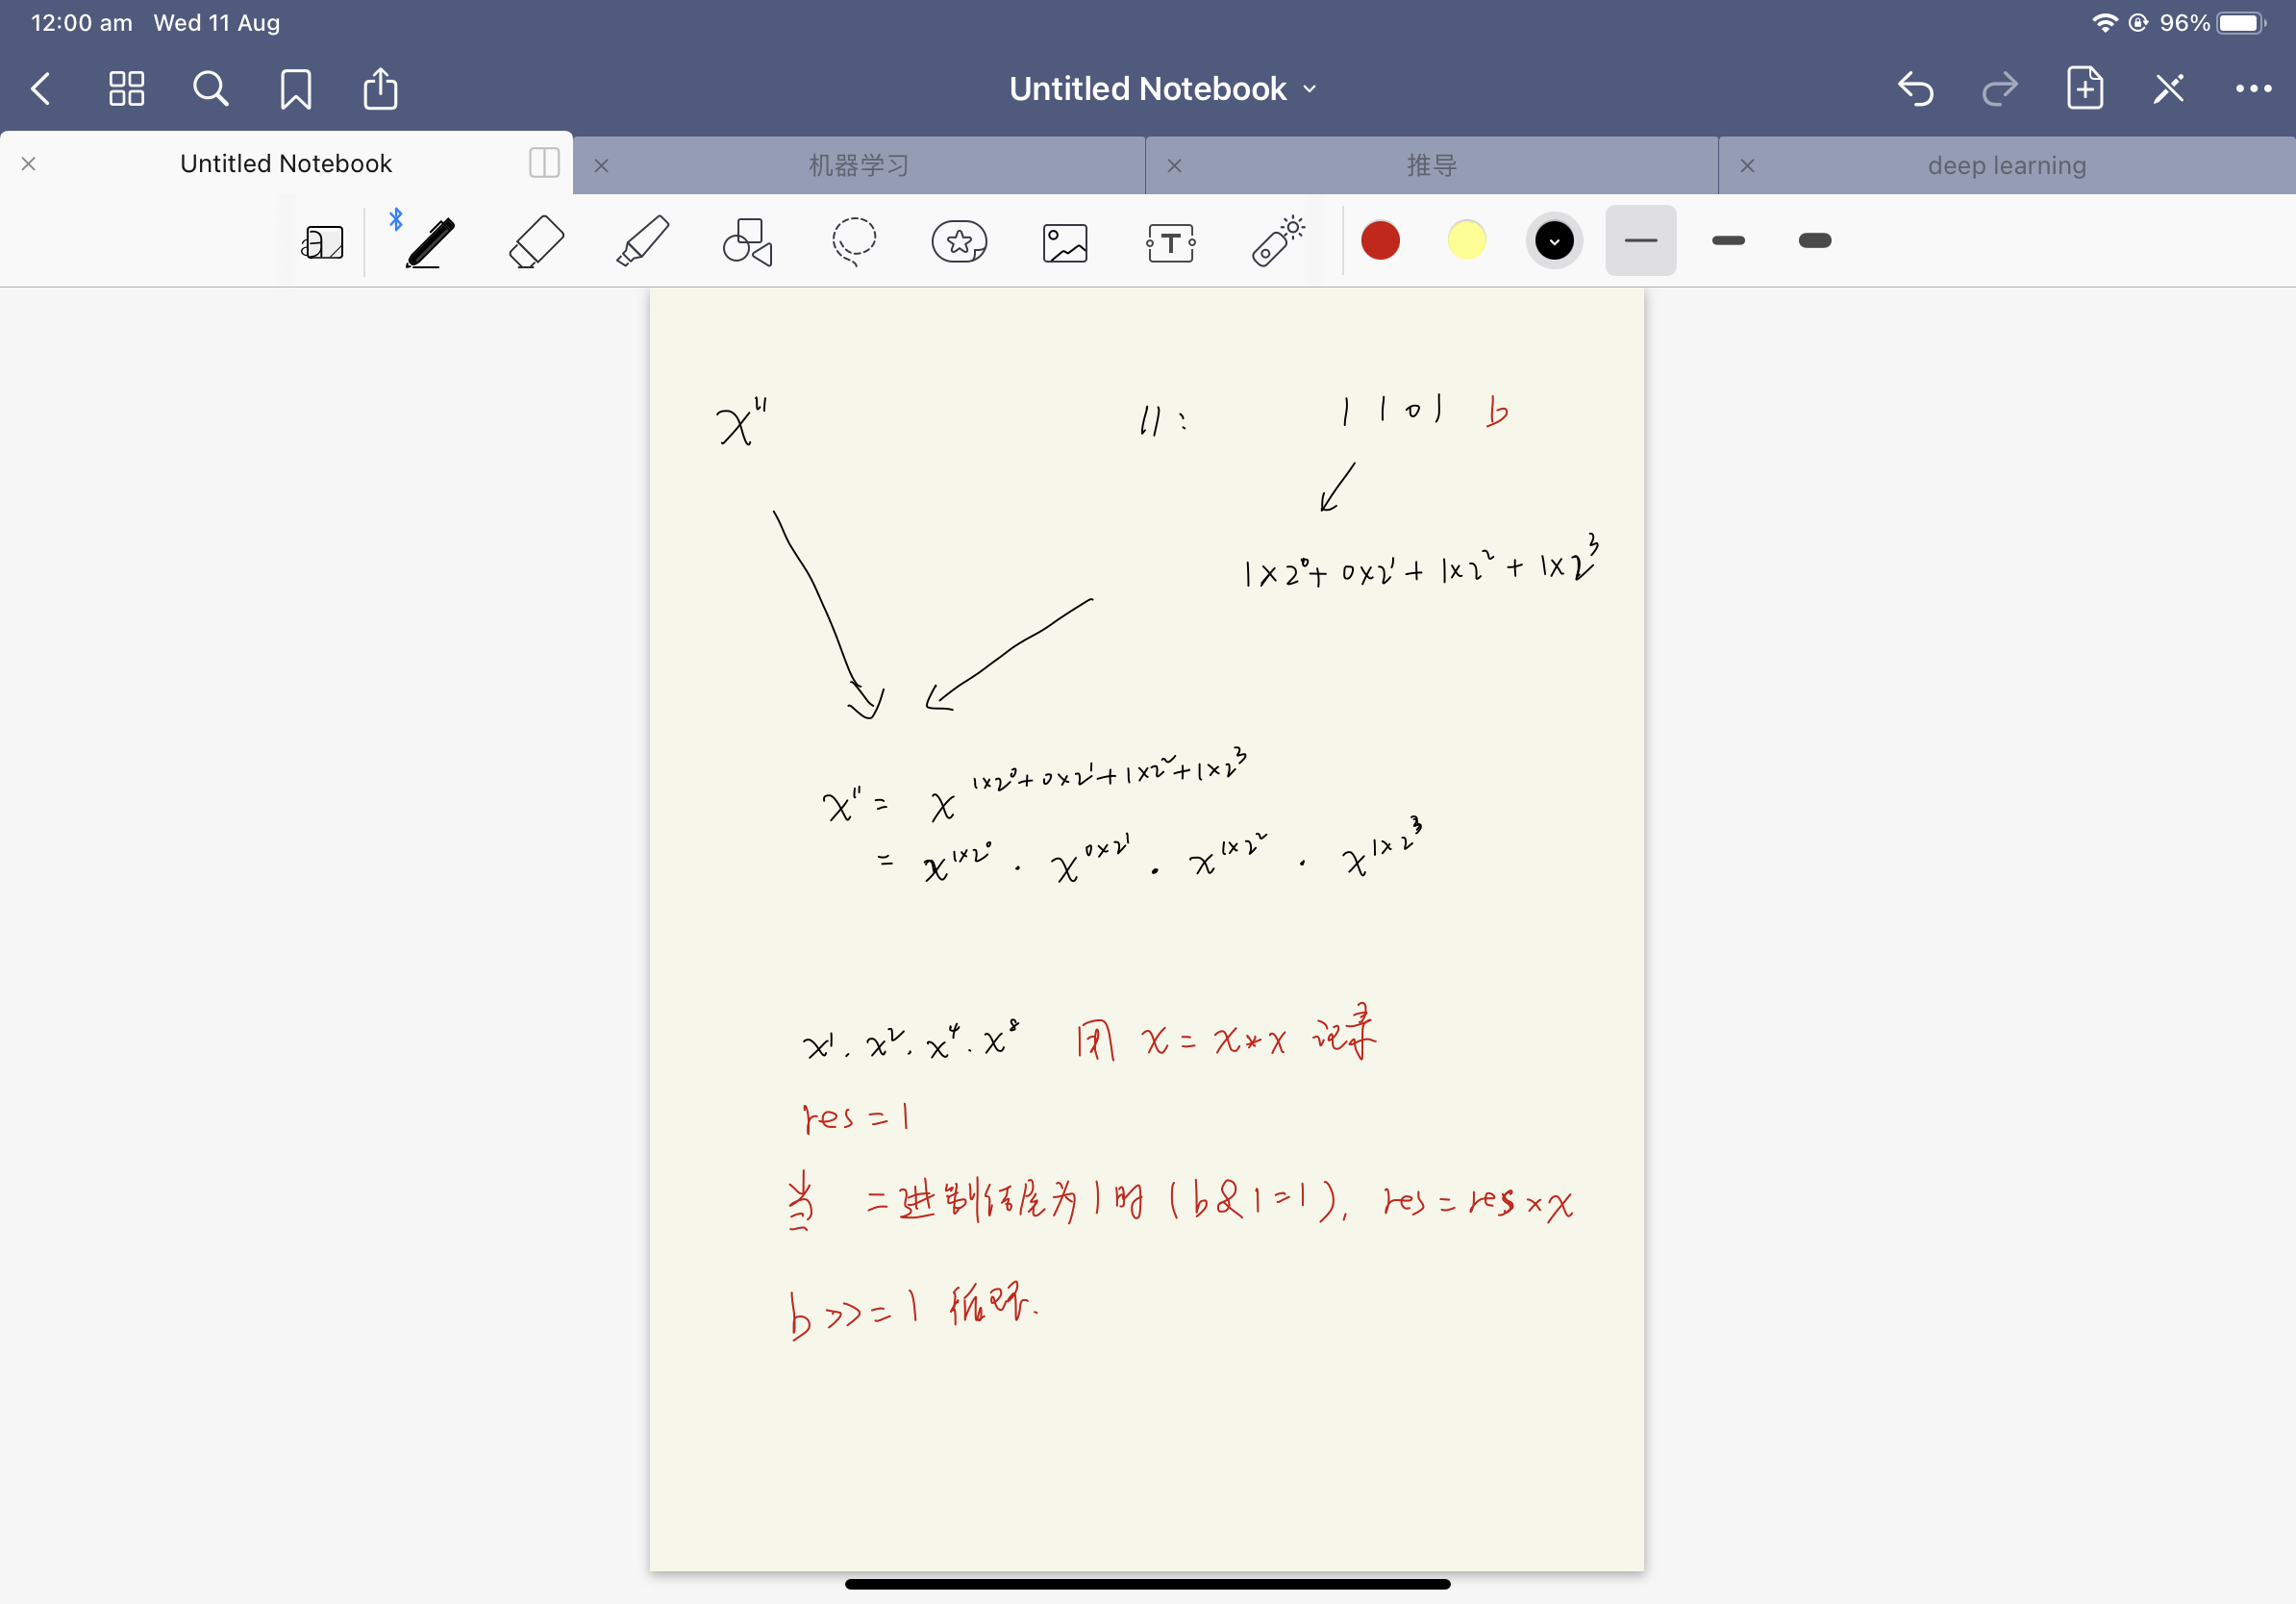 12:00 am Wed 11 Aug 96%
Untitled Notebook
Untitled Notebook 机器学习 推导 deep learning
T
x¹¹ 11: 1101 b
1×2⁰+0×2¹+1×2²+1×2³
x¹¹ = x^(1×2⁰+0×2¹+1×2²+1×2³)
= x^(1×2⁰) · x^(0×2¹) · x^(1×2²) · x^(1×2³)
x¹·x²·x⁴·x⁸ 用 x=x*x 记录
res=1
当 二进制结尾为1时(b&1=1), res=res×x
b>>=1 循环.